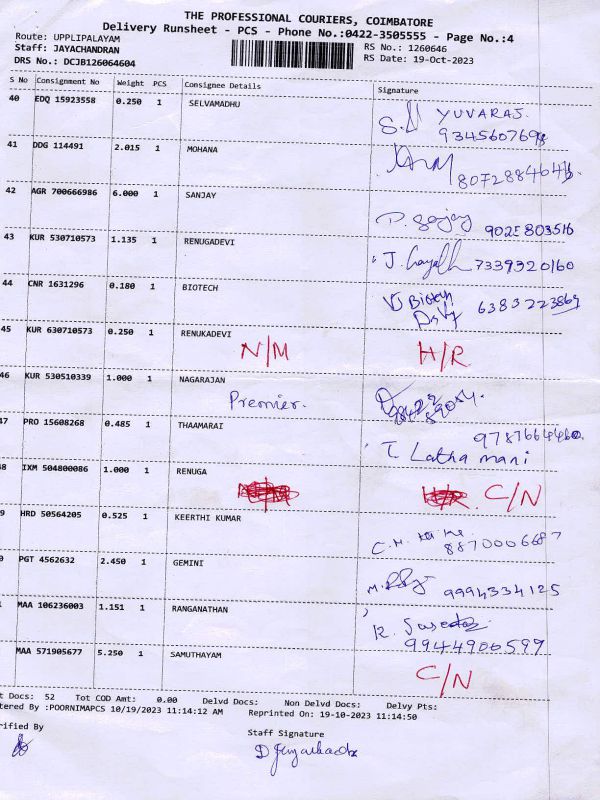 THE PROFESSIONAL COURIERS, COIMBATORE
Delivery Runsheet - PCS - Phone No.:0422-3505555 - Page No.:4
Route: UPPLIPALAYAM
RS No.: 1260646
Staff: JAYACHANDRAN
RS Date: 19-Oct-2023
DRS No.: DCJB126064604
S No Consignment No Weight PCS Consignee Details Signature
40 EDQ 15923558 0.250 1 SELVAMADHU
YUVARAJ.
9345607698
41 DDG 114491 2.015 1 MOHANA
8072884646
42 AGR 700666986 6.000 1 SANJAY
P. Sanjay 9025803516
43 KUR 530710573 1.135 1 RENUGADEVI
J. 7339320160
44 CNR 1631296 0.180 1 BIOTECH
VJ Biotech 6383223869
45 KUR 630710573 0.250 1 RENUKADEVI
N/M H/R
46 KUR 530510339 1.000 1 NAGARAJAN
Premier.
47 PRO 15608268 0.485 1 THAAMARAI
9787664460
T Latha mani
48 IXM 504800086 1.000 1 RENUGA
C/N
9 HRD 50564205 0.525 1 KEERTHI KUMAR
8870006687
PGT 4562632 2.450 1 GEMINI
9994334125
MAA 106236003 1.151 1 RANGANATHAN
R.
9944900599
MAA 571905677 5.250 1 SAMUTHAYAM
C/N
t Docs: 52 Tot COD Amt: 0.00 Delvd Docs: Non Delvd Docs: Delvy Pts:
tered By :POORNIMAPCS 10/19/2023 11:14:12 AM Reprinted On: 19-10-2023 11:14:50
rified By
Staff Signature